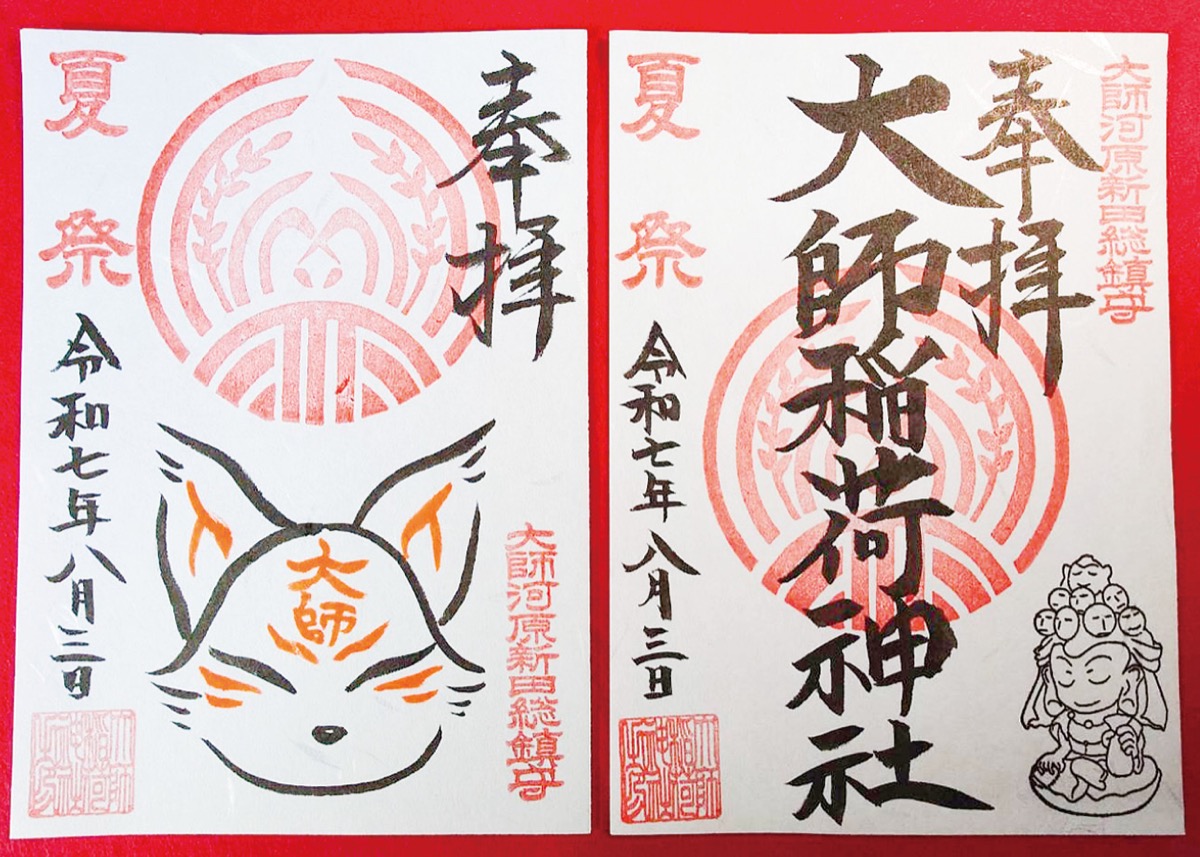 奉拝
大師
大師河原新田総鎮守
夏祭
令和七年八月三日
大師河原新田総鎮守
奉拝
大師稲荷神社
夏祭
令和七年八月三日